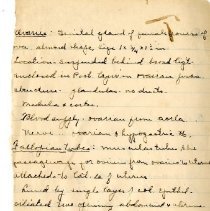 Ovaries: Genital gland of female source of
ova, almond shape, size 1½ x ¾ x ½ in.
Location - suspended behind broad ligt.
enclosed in Post. layer in ovarian fossa.
Structure - glandular - no ducts.
Medulla & cortex.
Blood supply - ovarian from aorta.
Nerve - ovarian & hypogastric
Fallopian Tubes: muscular tubes, the
passageway for ovum from ovaries to uterus
attached to Lat. of uterus
Lined by single layer of col. epithel.
ciliated. One opening abdomen & uterus